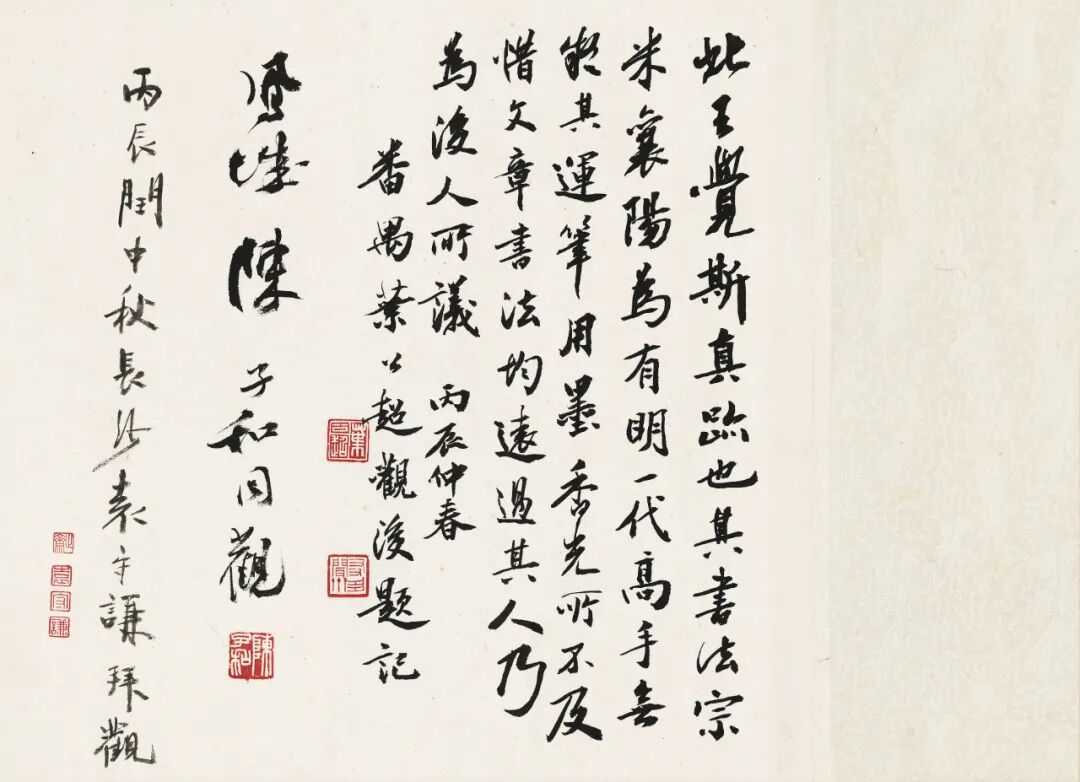 此王覺斯真跡也其書法宗
米襄陽為有明一代高手無
疑其運筆用墨香光所不及
惜文章書法均遠過其人乃
為後人所議 丙辰仲春
番禺葉公超觀後題記
葉公超
鳳城陳子和同觀
陳子和
丙辰閏中秋長沙袁守謙拜觀